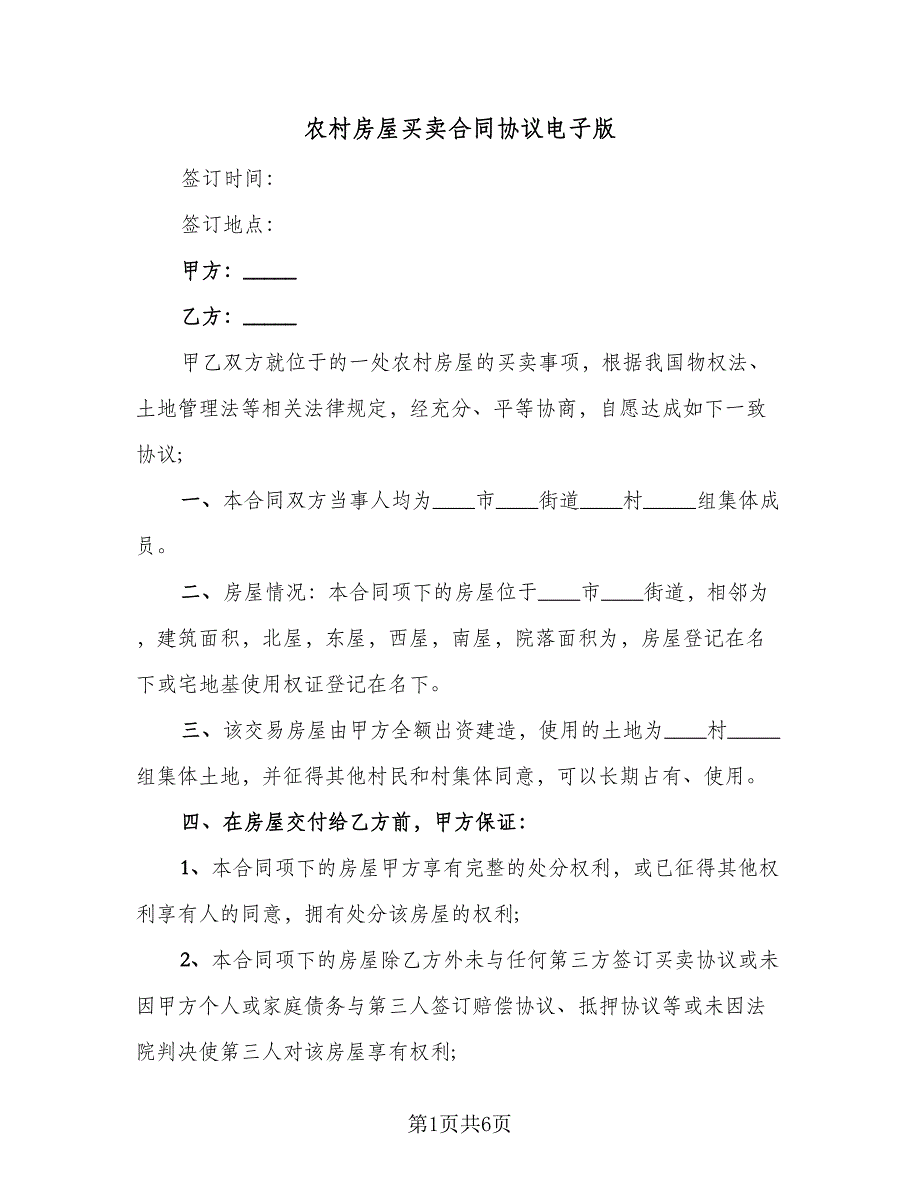 农村房屋买卖合同协议电子版
签订时间：
签订地点：
甲方：_____
乙方：_____
甲乙双方就位于的一处农村房屋的买卖事项，根据我国物权法、
土地管理法等相关法律规定，经充分、平等协商，自愿达成如下一致
协议;
一、本合同双方当事人均为____市____街道____村_____组集体成
员。
二、房屋情况：本合同项下的房屋位于____市____街道，相邻为
，建筑面积，北屋，东屋，西屋，南屋，院落面积为，房屋登记在名
下或宅地基使用权证登记在名下。
三、该交易房屋由甲方全额出资建造，使用的土地为____村_____
组集体土地，并征得其他村民和村集体同意，可以长期占有、使用。
四、在房屋交付给乙方前，甲方保证：
1、本合同项下的房屋甲方享有完整的处分权利，或已征得其他权
利享有人的同意，拥有处分该房屋的权利;
2、本合同项下的房屋除乙方外未与任何第三方签订买卖协议或未
因甲方个人或家庭债务与第三人签订赔偿协议、抵押协议等或未因法
院判决使第三人对该房屋享有权利;
第1页共6页